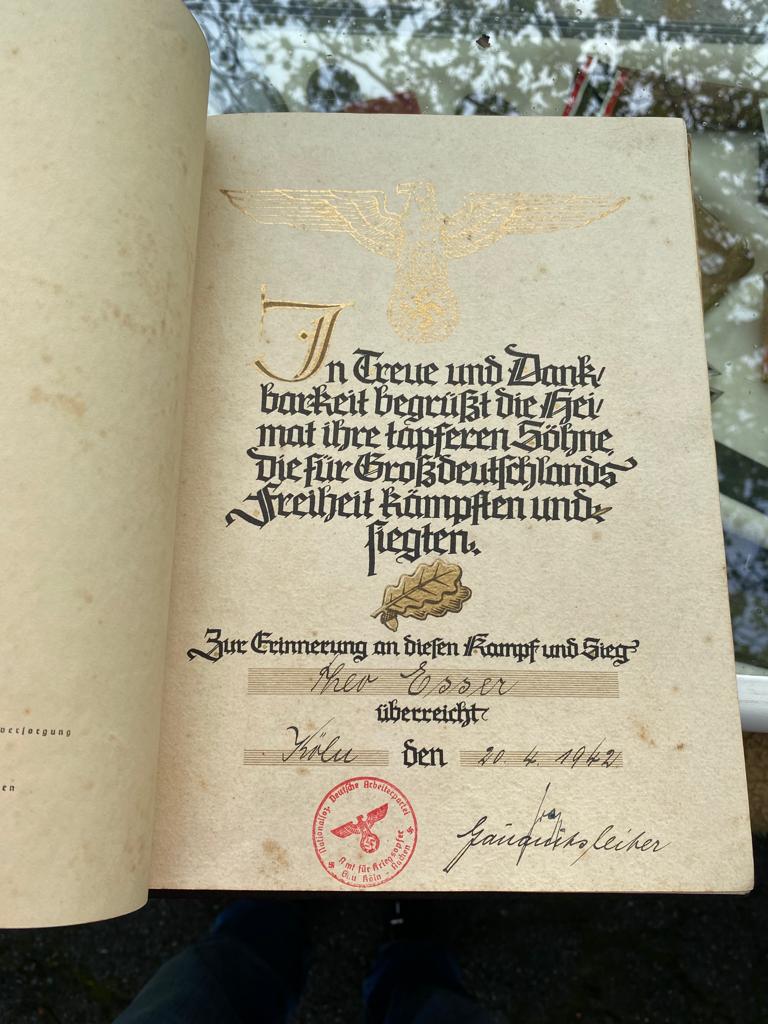 versorgung
en
In Treue und Dank/
barkeit begrüßt die Hei/
mat ihre tapferen Söhne,
die für Großdeutschlands
Freiheit kämpften und
siegten.
Zur Erinnerung an diesen Kampf und Sieg
Theo Esser
überreicht
Köln den 20. 4. 1942
Nationalsoz. Deutsche Arbeiterpartei
Amt für Kriegsopfer
Gau Köln - Aachen
Gauamtsleiter